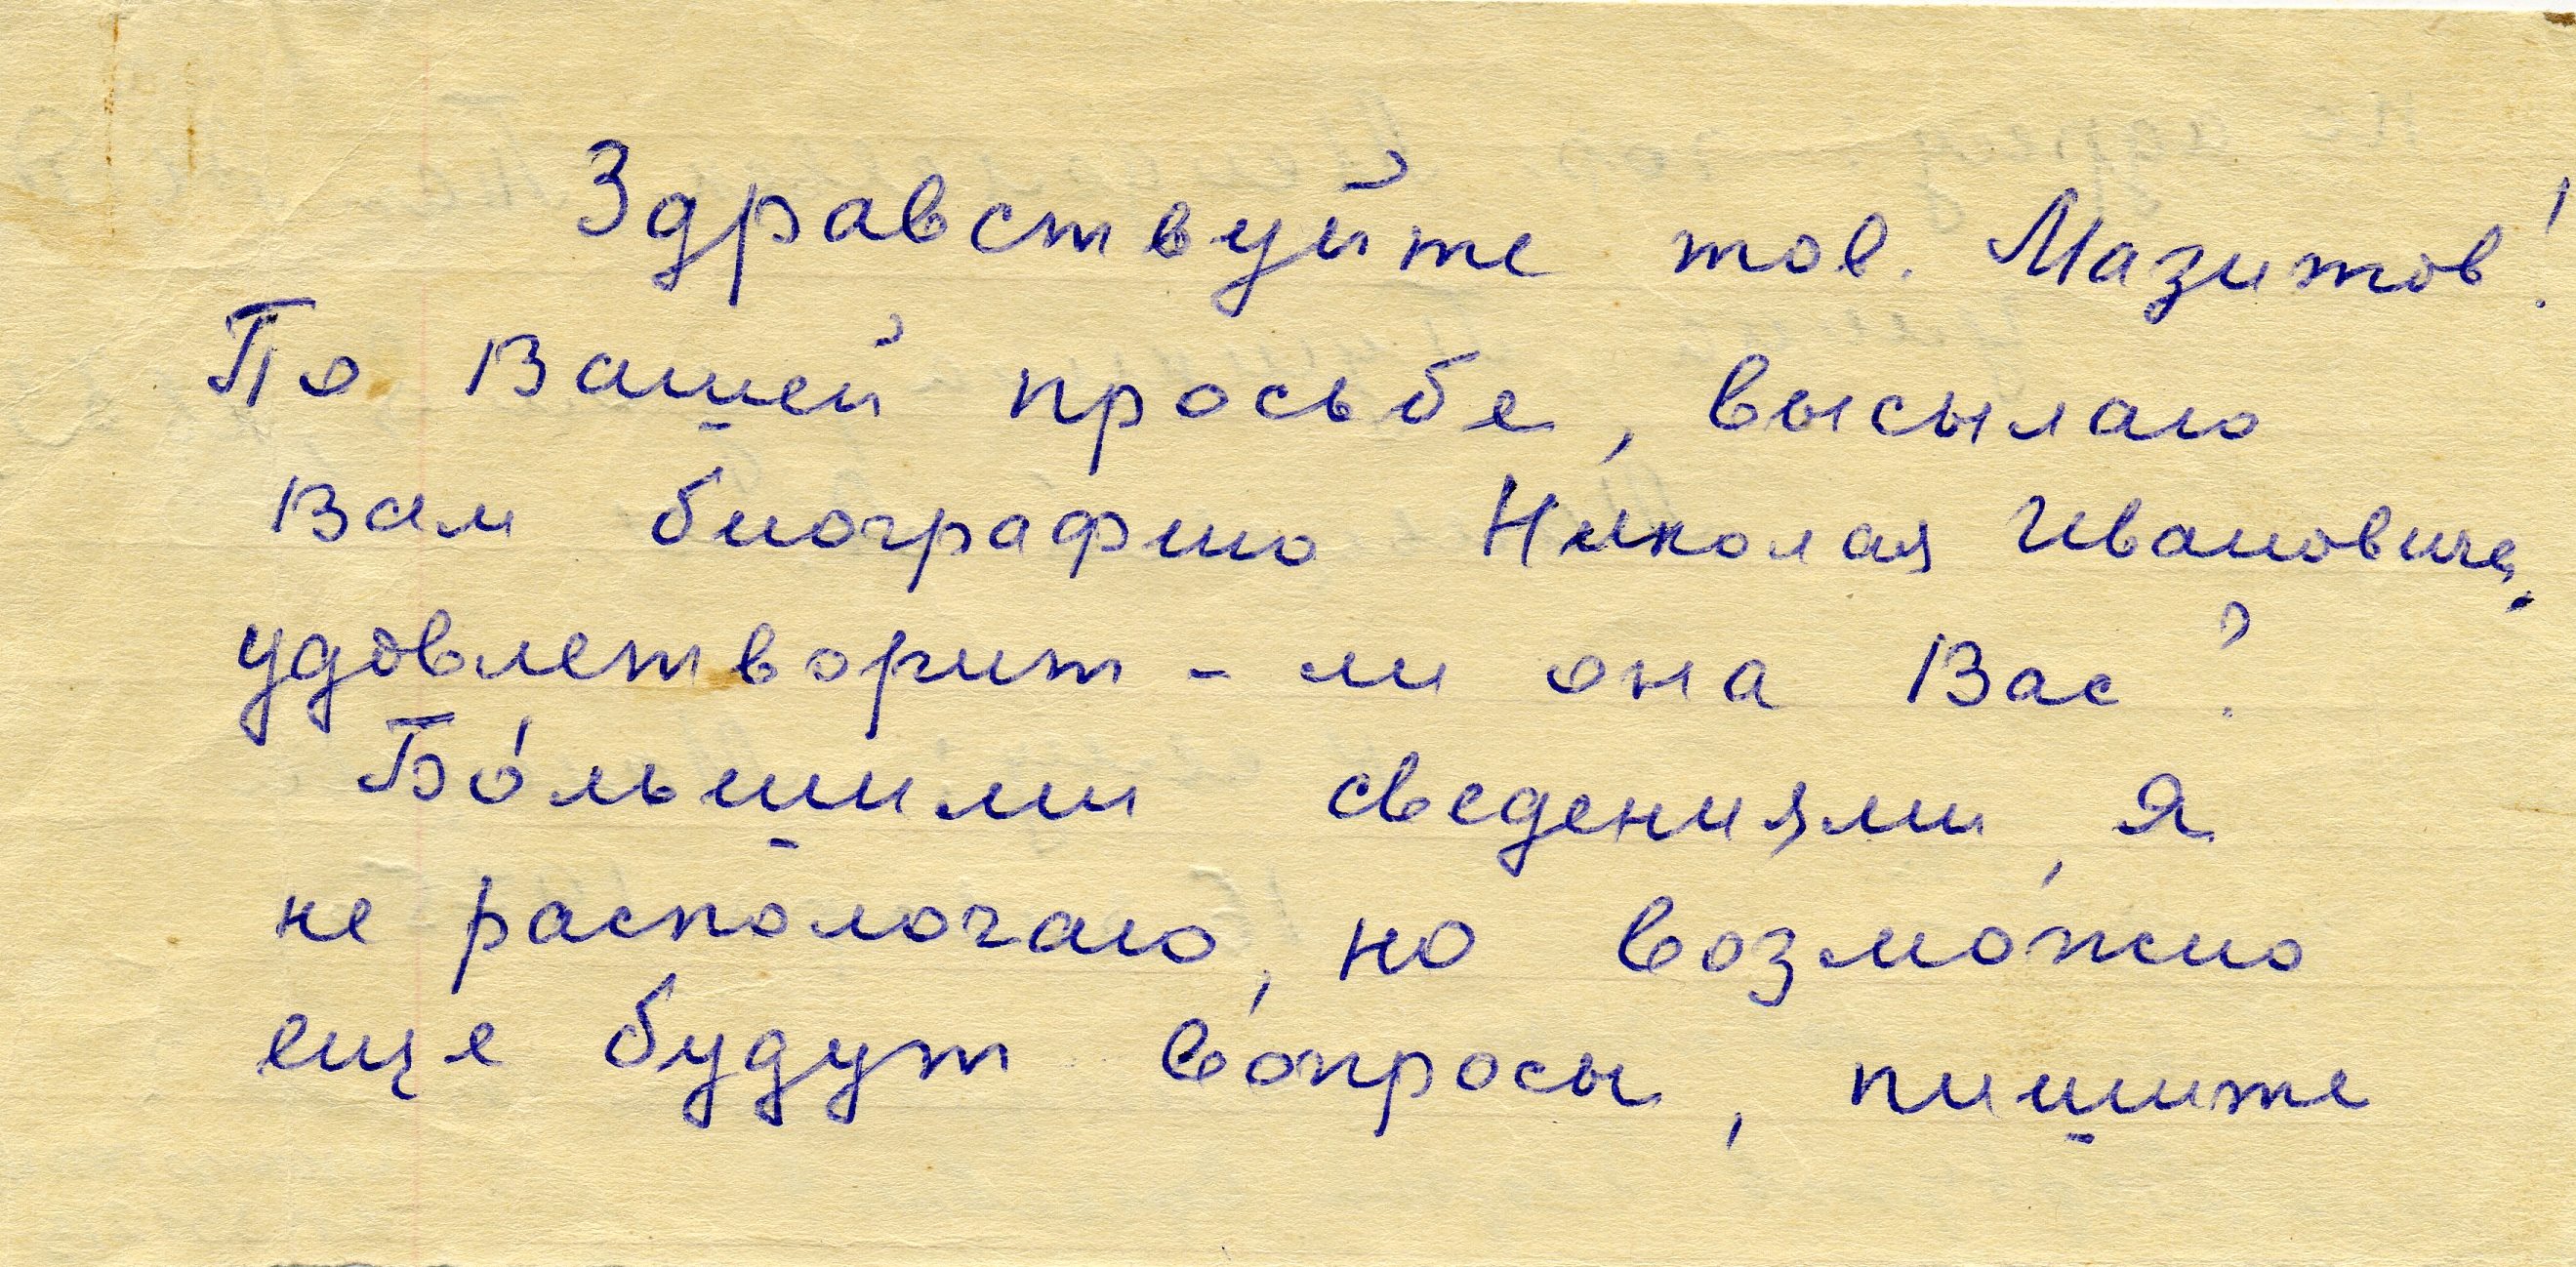 Здравствуйте тов. Мазитов!
По Вашей просьбе, высылаю
Вам биографию Николая Ивановича,
удовлетворит - ли она Вас?
Бо́льшими сведениями, я
не распологаю, но возможно
еще будут вопросы, пишите